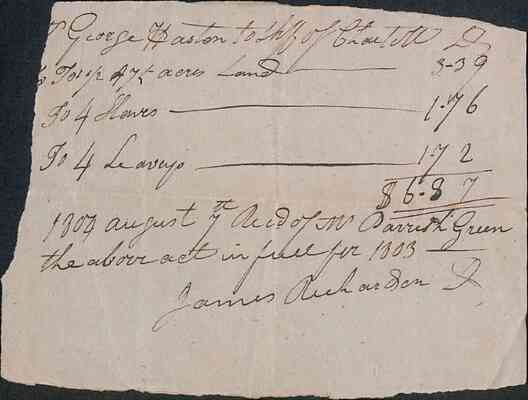 George Haston to Shff of Charlotte D
To acres Land 3-39
To 4 Slaves 1-76
To 4 Leavys 1-72
$ 6-87
1804 august 7th Recd of Mr Parrish Green
the above act in full for 1803
James Richardson D